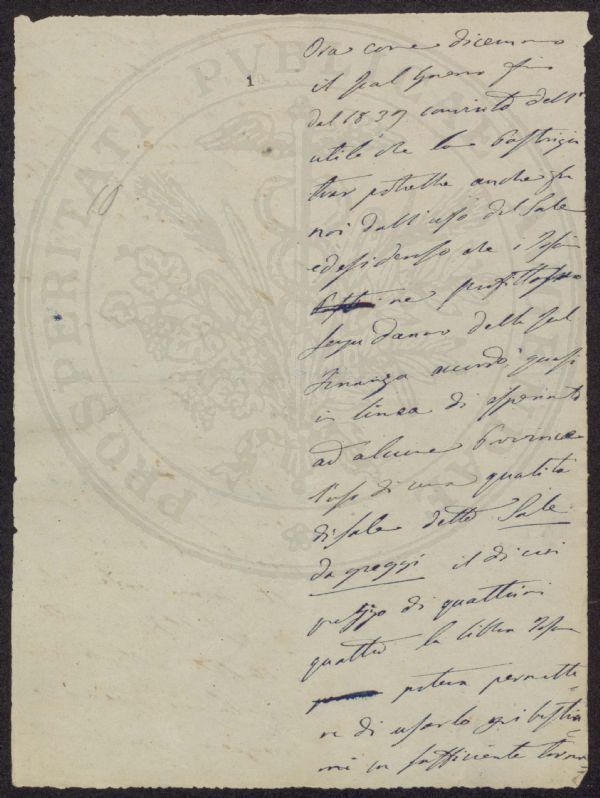 1
Ora come dicemmo
il Real Governo fin
dal 1839 convinto dell'
utile che la Pastorizia
trar potrebbe anche fra
noi dall'uso del Sale
e desideroso che i
ne profittass
senza danno della Real
Finanza accordò quasi
in linea di esperimento
ad alcune Provincie
l'uso di una qualità
di sale detto Sale
da greggi il di cui
prezzo di quattrini
quattro la libbra
potea permette-
re di usarlo pei bestia=
mi in sufficiente
PROSPERITATI PVBLICAE